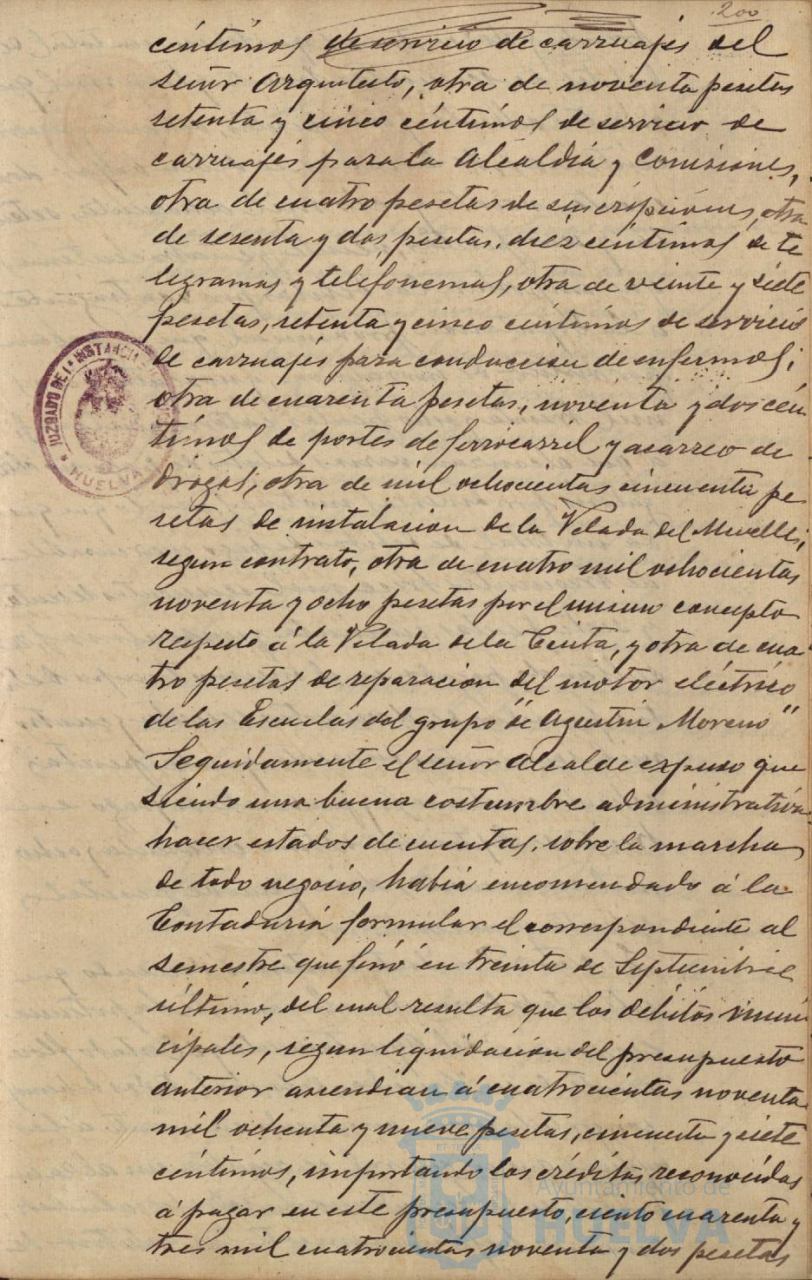 200
céntimos de servicio de carruajes del
señor Arquitecto, otra de noventa pesetas
setenta y cinco céntimos de servicio de
carruajes para la Alcaldia y Comisiones,
otra de cuatro pesetas de suscripciones, otra
de sesenta y dos pesetas, diez céntimos de te
legramas y telefonemas, otra de veinte y siete
pesetas, setenta y cinco céntimos de servicio
de carruajes para conduccion de enfermos;
otra de cuarenta pesetas, noventa y dos cén
timos de portes de ferrocarril y acarreo de
drogas, otra de mil ochocientas cincuenta pe
setas de instalacion de la Velada del Muelle,
segun contrato, otra de cuatro mil ochocientas
noventa y ocho pesetas por el mismo concepto
respecto á la Velada de la Cinta, y otra de cua
tro pesetas de reparacion del motor eléctrico
de las Escuelas del grupo "de Agustin Moreno"
Seguidamente el señor Alcalde expuso que
siendo una buena costumbre administrativa
hacer estados de cuentas, sobre la marcha
de todo negocio, habia encomendado á la
Contaduria formular el correspondiente al
semestre que finó en treinta de Septiembre
último, del cual resulta que los débitos muni
cipales, segun liquidacion del presupuesto
anterior ascendian á cuatrocientas noventa
mil ochenta y nueve pesetas, cincuenta y siete
céntimos, importando los créditos reconocidos
á pagar en este presupuesto, ciento cuarenta y
tres mil cuatrocientas noventa y dos pesetas
JUZGADO DE 1ª INSTANCIA
HUELVA
Ayuntamiento de
HUELVA